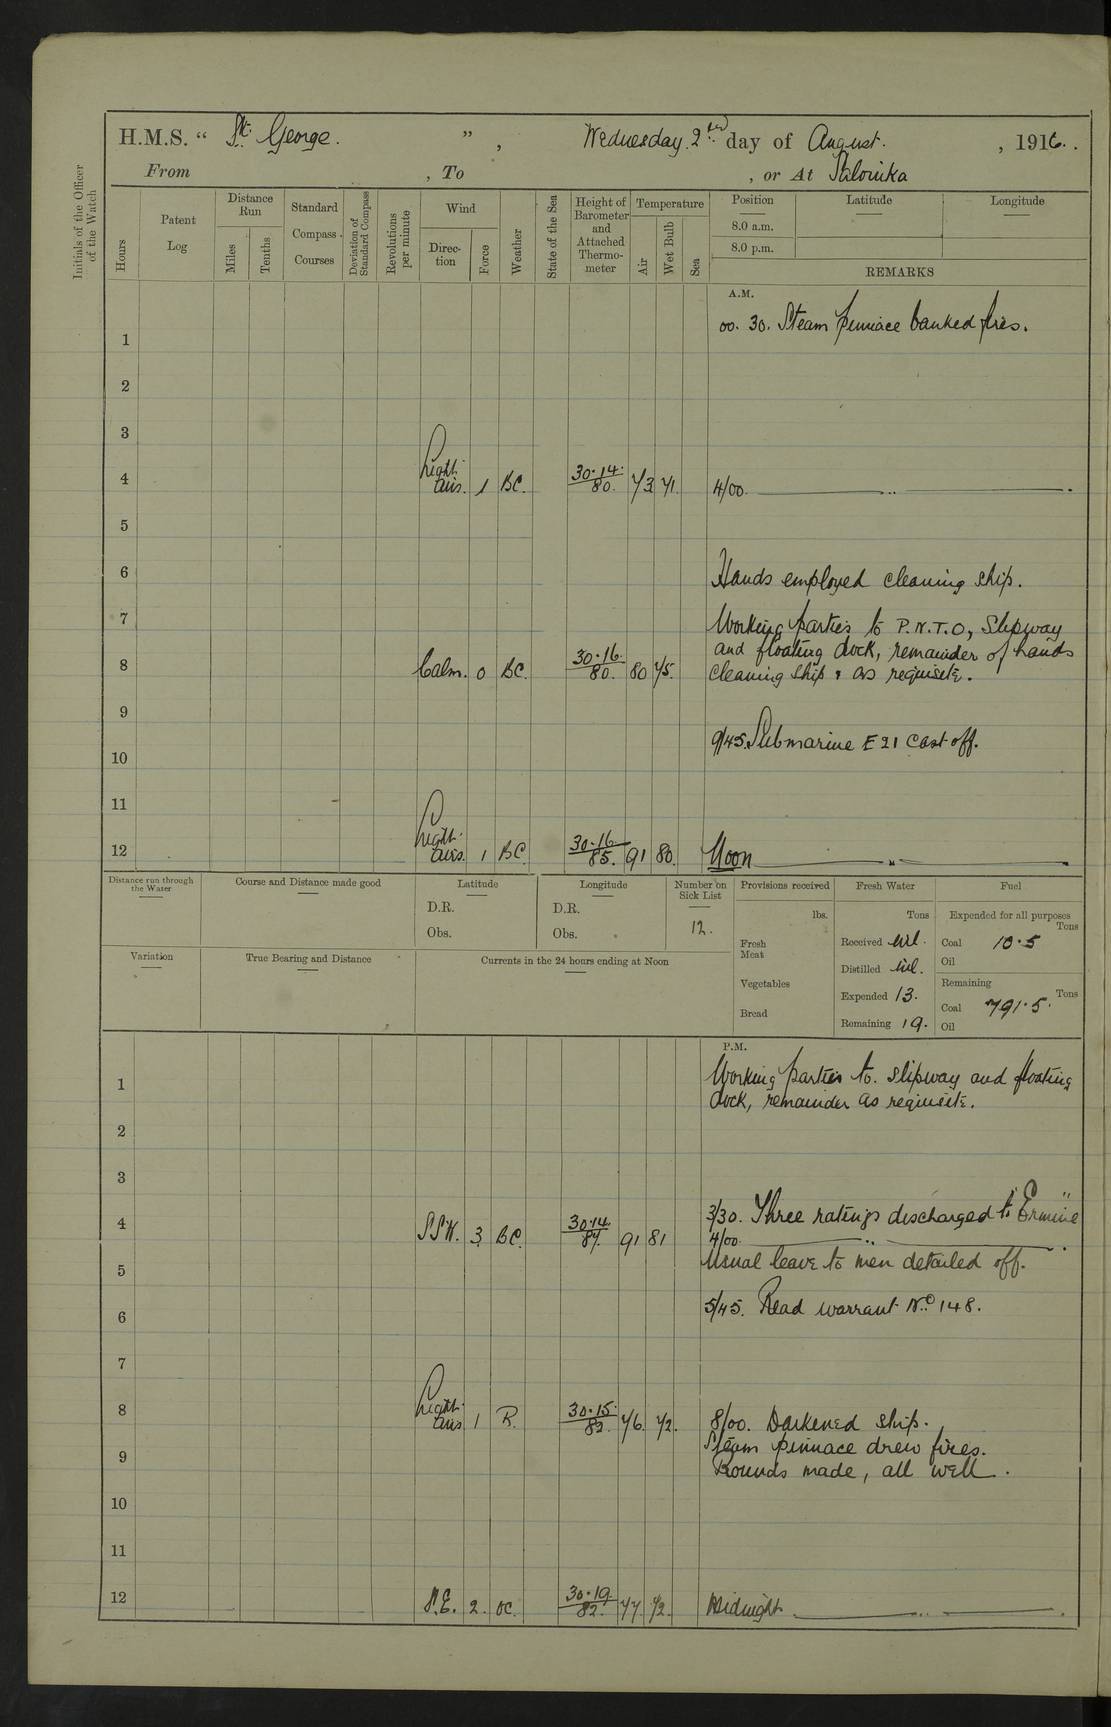 H.M.S. “ St. George. ” , Wednesday. 2nd day of August. , 1916.
From , To , or At Salonika
Initials of the Officer
of the Watch
Hours
Patent
Log
Distance
Run
Miles
Tenths
Standard
Compass
Courses
Deviation of
Standard Compass
Revolutions
per minute
Wind
Direc-
tion
Force
Weather
State of the Sea
Height of
Barometer
and
Attached
Thermo-
meter
Temperature
Air
Wet Bulb
Sea
Position Latitude Longitude
8.0 a.m.
8.0 p.m.
REMARKS
A.M.
00.30. Steam pinnace banked fires.
1
2
3
4 Light airs. 1 BC. 30.14. 80. 73 71. 4/00. „ .
5
6 Hands employed cleaning ship.
7 Working parties to P.N.T.O, Slipway
and floating dock, remainder of hands
8 Calm. 0 BC. 30.16. 80. 80 75. cleaning ship & as requisite.
9
9/45. Submarine E21 cast off.
10
11
12 Light airs. 1 BC. 30.16 85. 91 80. Noon „ .
Distance run through
the Water
Course and Distance made good
Latitude
D.R.
Obs.
Longitude
D.R.
Obs.
Number on
Sick List
12.
Provisions received
lbs.
Fresh
Meat
Vegetables
Bread
Fresh Water
Tons
Received nil.
Distilled nil.
Expended 13.
Remaining 19.
Fuel
Expended for all purposes
Tons
Coal 10.5
Oil
Remaining
Tons
Coal 791.5.
Oil
Variation
True Bearing and Distance
Currents in the 24 hours ending at Noon
P.M.
1 Working parties to. slipway and floating
dock, remainder as requisite.
2
3
3/30. Three ratings discharged to "Ermine"
4 SSW. 3 BC. 30.14. 87. 91 81 4/00. „ .
5 Usual leave to men detailed off.
5/45. Read warrant No. 148.
6
7
8 Light airs 1 R. 30.15. 82. 76. 72. 8/00. Darkened ship.
Steam pinnace drew fires.
9 Rounds made, all well.
10
11
12 2. OC. 30.19. 82. 77. 72. Midnight „ .